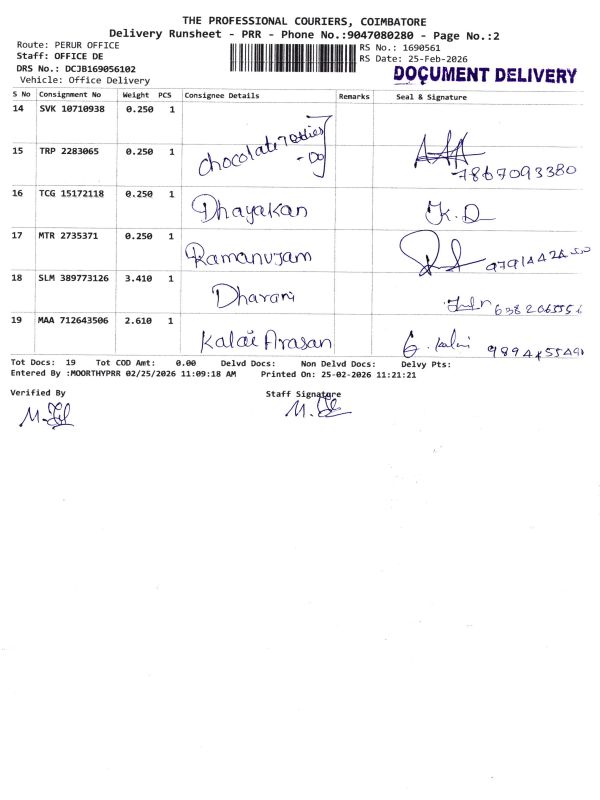 THE PROFESSIONAL COURIERS, COIMBATORE
Delivery Runsheet - PRR - Phone No.:9047080280 - Page No.:2
Route: PERUR OFFICE
Staff: OFFICE DE
DRS No.: DCJB169056102
Vehicle: Office Delivery
RS No.: 1690561
RS Date: 25-Feb-2026
DOCUMENT DELIVERY
S No Consignment No Weight PCS Consignee Details Remarks Seal & Signature
14 SVK 10710938 0.250 1
15 TRP 2283065 0.250 1 chocolate - Do 7867093380
16 TCG 15172118 0.250 1 Dhayakan K.D
17 MTR 2735371 0.250 1 Ramanujam
18 SLM 389773126 3.410 1 Dharani
19 MAA 712643506 2.610 1 Kalai Arasan G. Kalai
Tot Docs: 19 Tot COD Amt: 0.00 Delvd Docs: Non Delvd Docs: Delvy Pts:
Entered By :MOORTHYPRR 02/25/2026 11:09:18 AM Printed On: 25-02-2026 11:21:21
Verified By Staff Signature